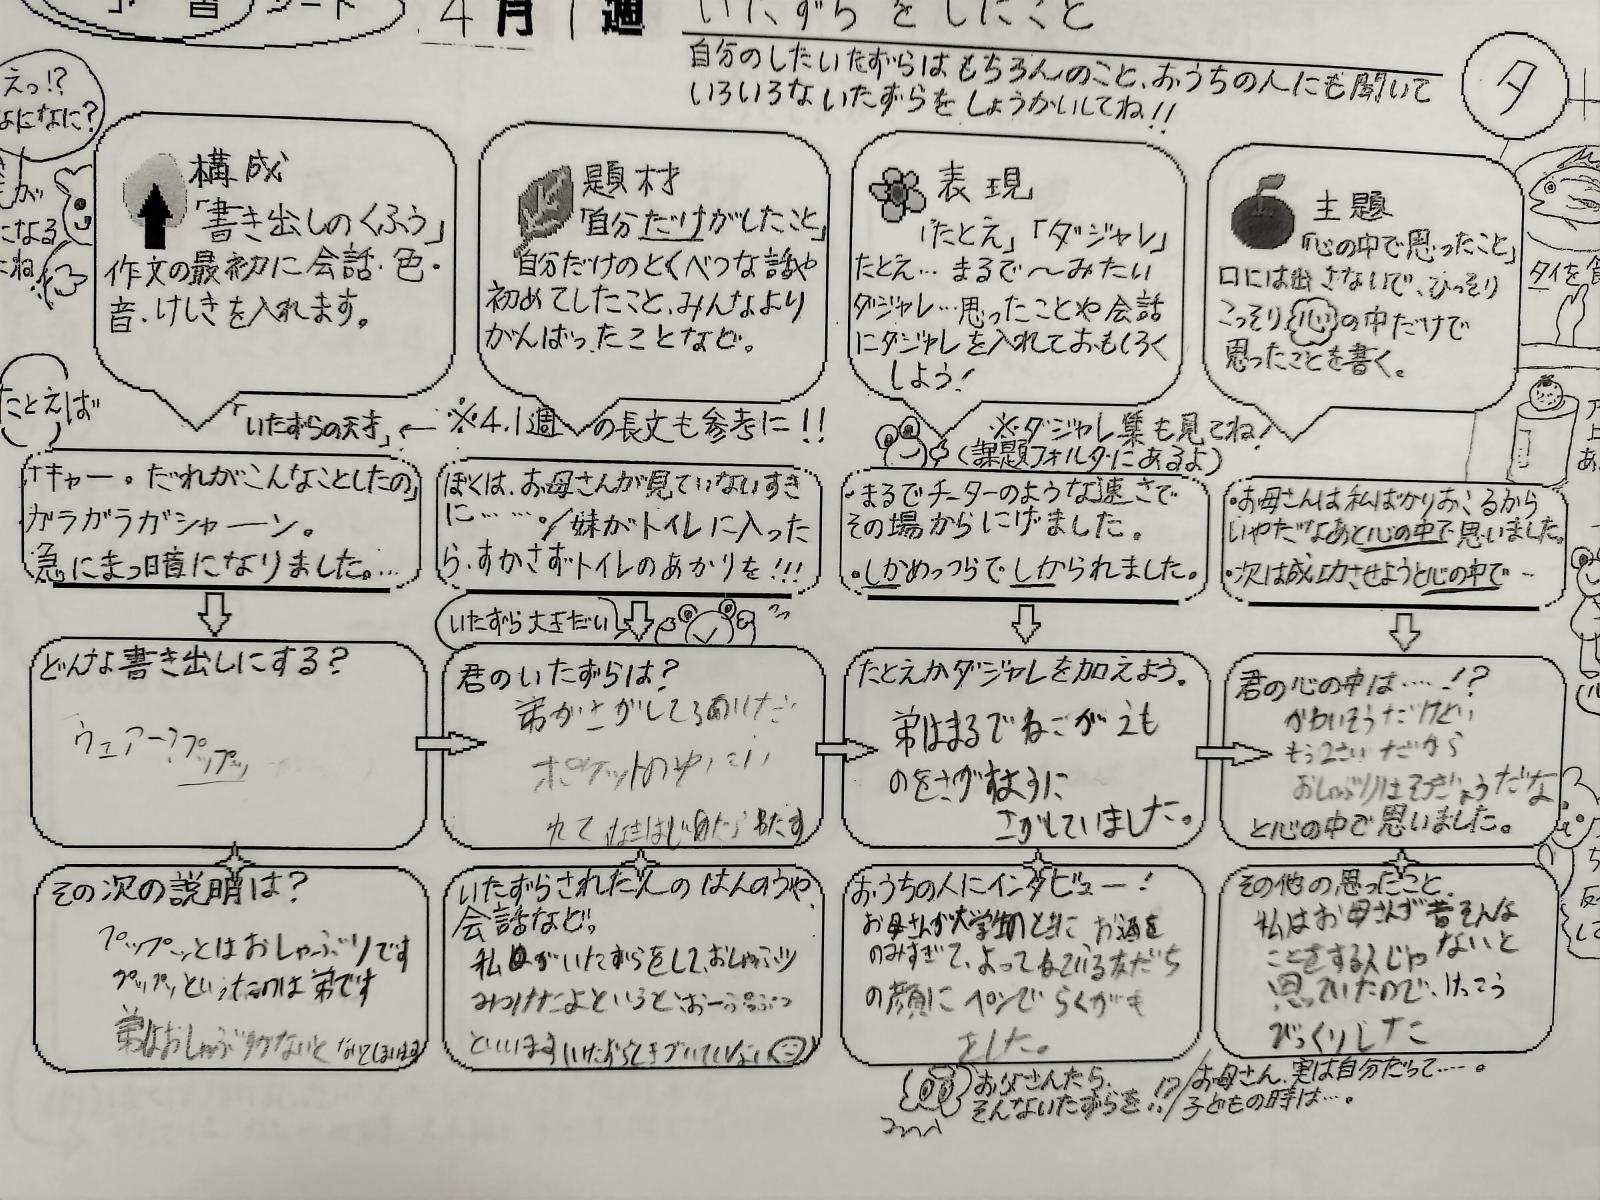 4月1週
いたずらをしたこと
自分のしたいたずらはもちろんのこと、おうちの人にも聞いて
いろいろないたずらをしょうかいしてね!!
えっ!?
なになに?
タ
構成
「書き出しのくふう」
作文の最初に会話・色・
音・けしきを入れます。
題材
「自分だけがしたこと」
自分だけのとくべつな話や
初めてしたこと、みんなより
がんばったことなど。
表現
「たとえ」「ダジャレ」
たとえ…まるで〜みたい
ダジャレ…思ったことや会話
にダジャレを入れておもしろく
しよう!
主題
「心の中で思ったこと」
口には出さないで、ひっそり
こっそり心の中だけで
思ったことを書く。
たとえば
「いたずらの天才」← ※4.1週の長文も参考に!!
※ダジャレ集も見てね!
(課題フォルダにあるよ)
「キャー。だれがこんなことしたの」
ガラガラガシャーン。
急にまっ暗になりました。…
ぼくは、お母さんが見ていないすき
に……。/妹がトイレに入った
ら、すかさずトイレのあかりを!!!
・まるでチーターのような速さで
その場からにげました。
・しかめっつらでしかられました。
・お母さんは私ばかりおこるから
いやだなあと心の中で思いました。
・次は成功させようと心の中で…
どんな書き出しにする?
ウェアー?プップッ
いたずら大王だい
君のいたずらは?
弟がさがしてるあいだ
ポケットの中に
たとえかダジャレを加えよう。
弟はまるでねこがえも
のをさがすように
さがしていました。
君の心の中は……!?
かわいそうだけど
もう2さいだから
おしゃぶりはそつぎょうだな
と心の中で思いました。
その次の説明は?
プップッとはおしゃぶりです
プップッといったのは弟です
弟はおしゃぶりがないとないてしまいます
いたずらされた人のはんのうや、
会話など。
私がいたずらをして、おしゃぶり
みつけたよというと
といいます
おうちの人にインタビュー!
お母さんが大学生のときにお酒を
のみすぎて、よってねている友だち
の顔にペンでらくがき
をした。
その他の思ったこと。
私はお母さんが昔そんな
ことをする人じゃないと
思っていたので、けっこう
びっくりした
お父さんたら、
そんないたずらを!?
/お母さん、実は自分だって……。
子どもの時は…。